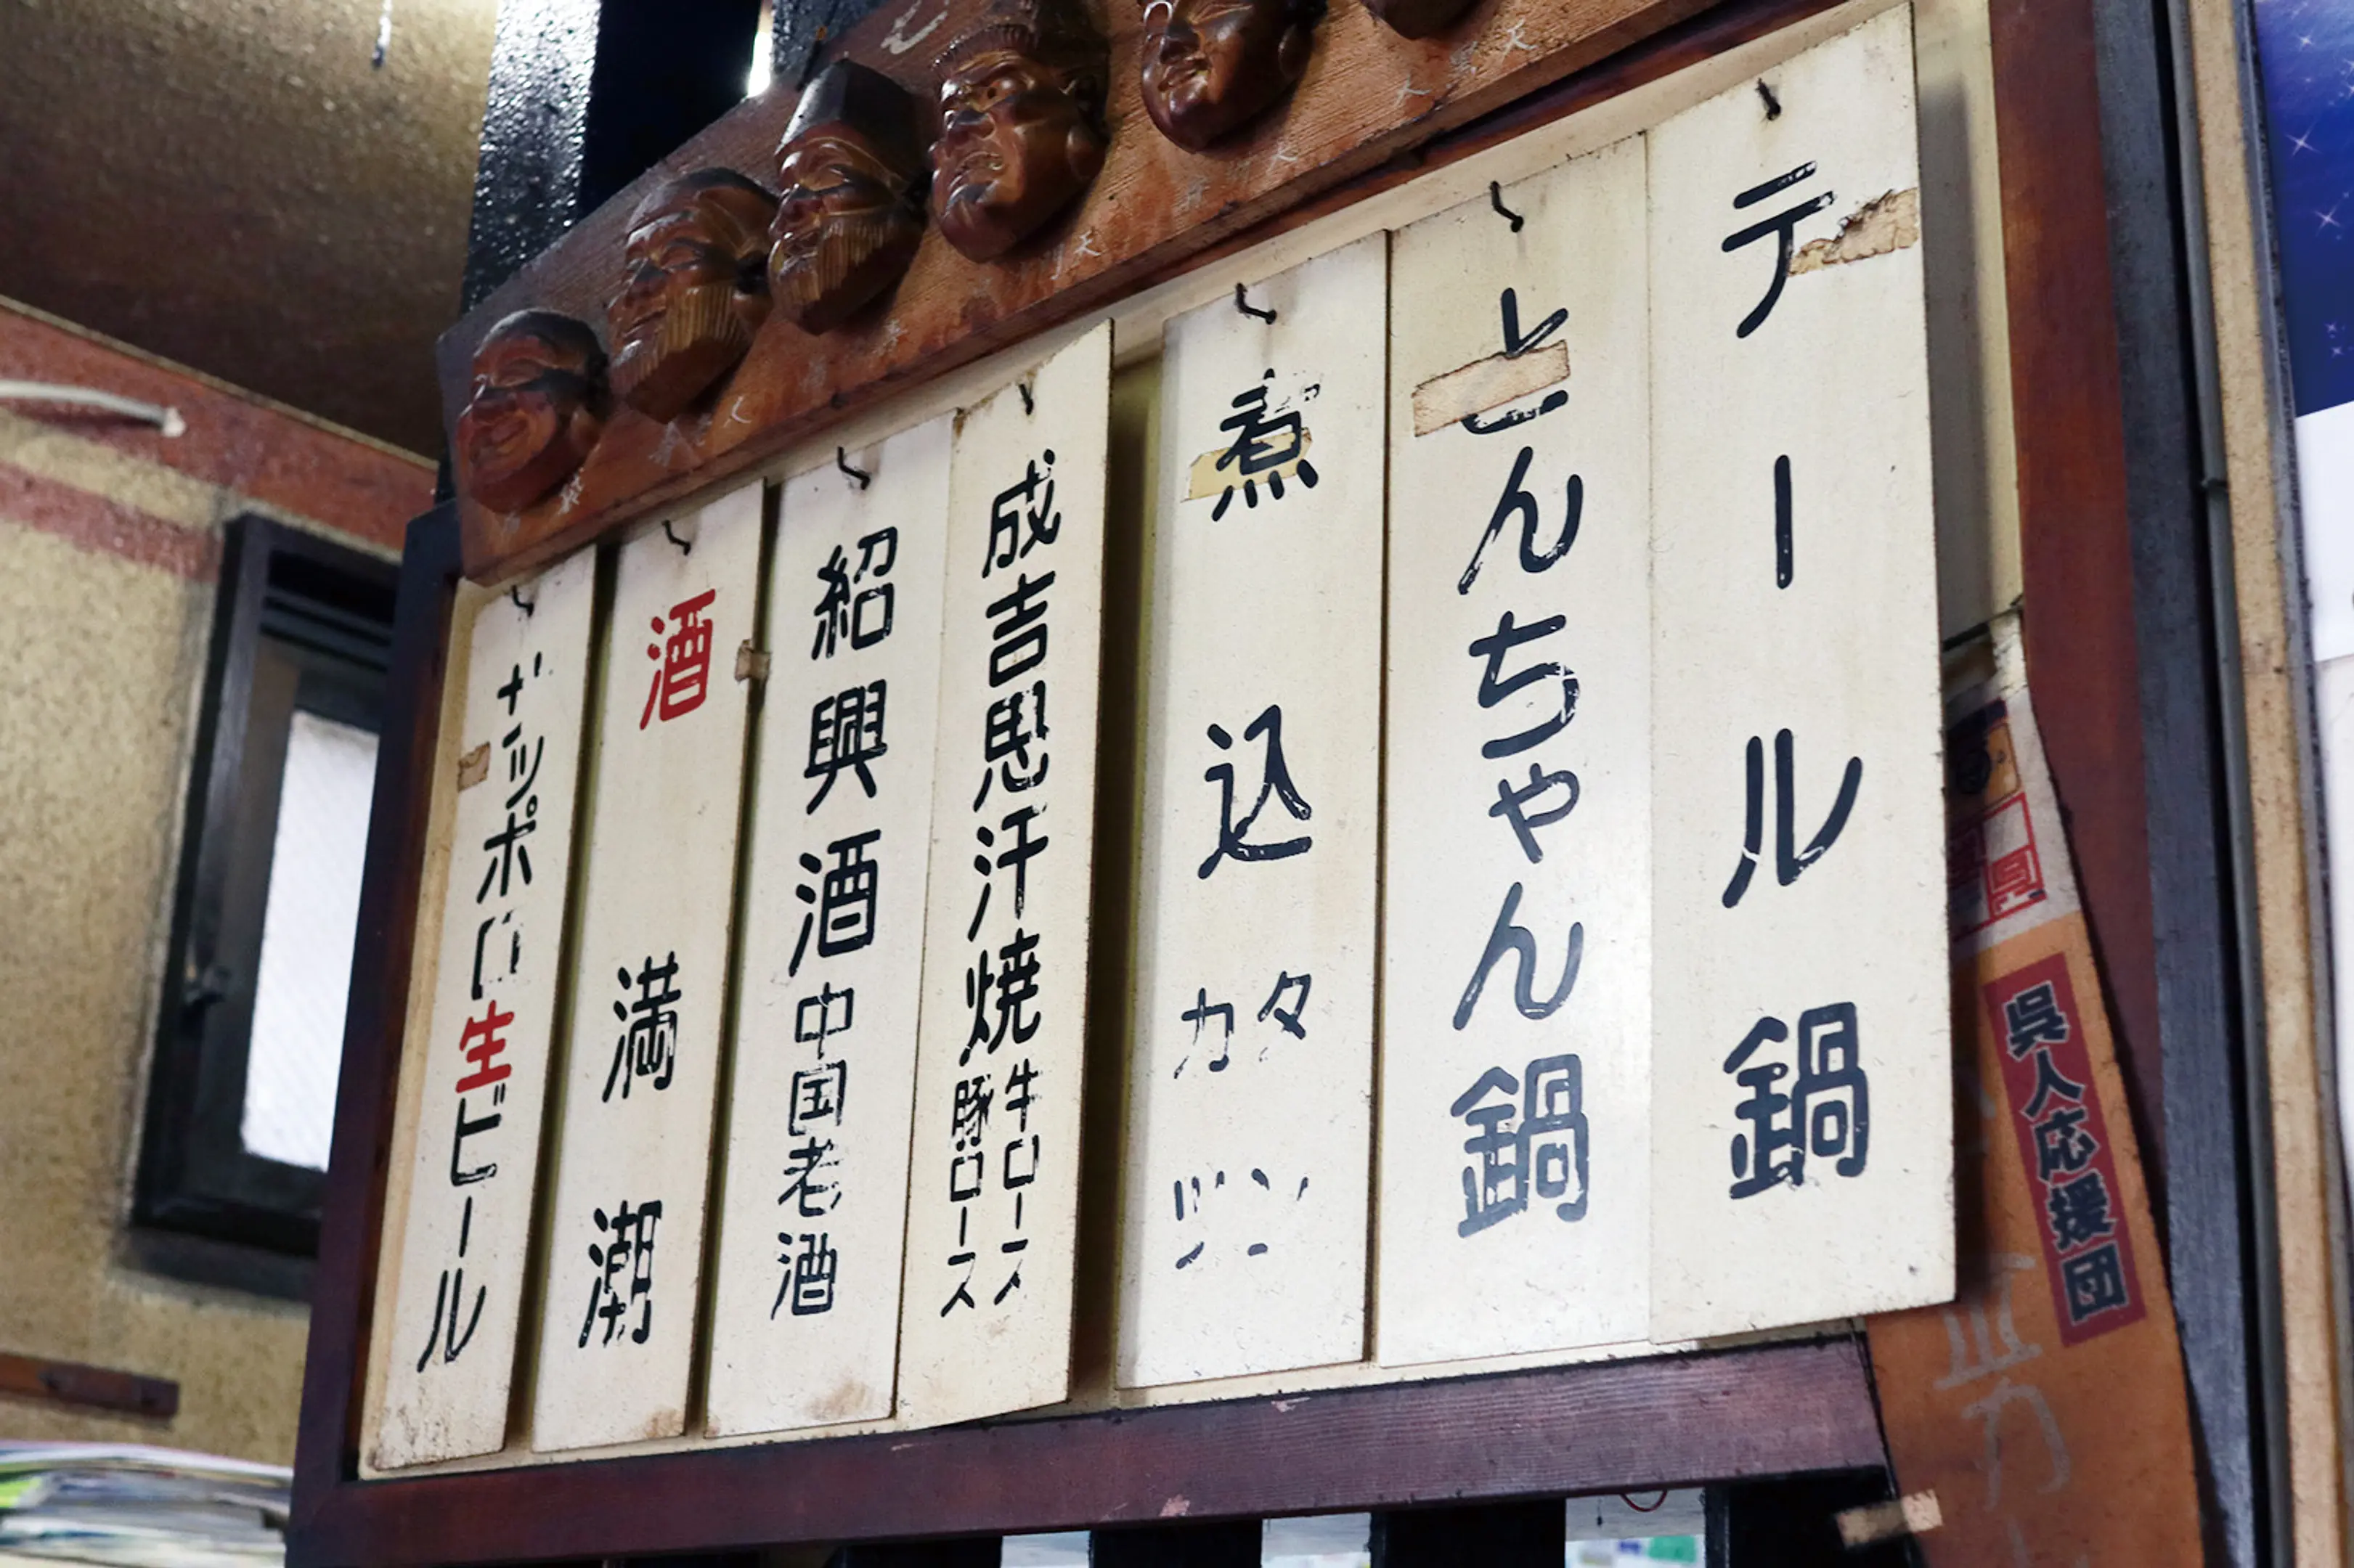 テール鍋
とんちゃん鍋
煮込
タン
カツ
成吉思汗焼
牛ロース
豚ロース
紹興酒中国老酒
酒満潮
サッポロ生ビール
呉人応援団